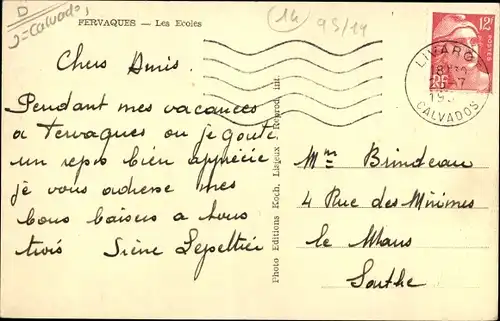 D
J=Calvados,
FERVAQUES — Les Ecoles
(14)
95/19
12F
POSTES
RF
LIVAROT
CALVADOS
Chers Amis.
Pendant mes vacances
a Fervaques ou je goute
un repos bien appréciée
je vous adresse mes
bons baisers a tous
trois Irène Lepeltier
Photo Editions Koch, Liseux - Reprod. int.
Mme Brindeau
4 Rue des Minimes
le Mans
Sarthe